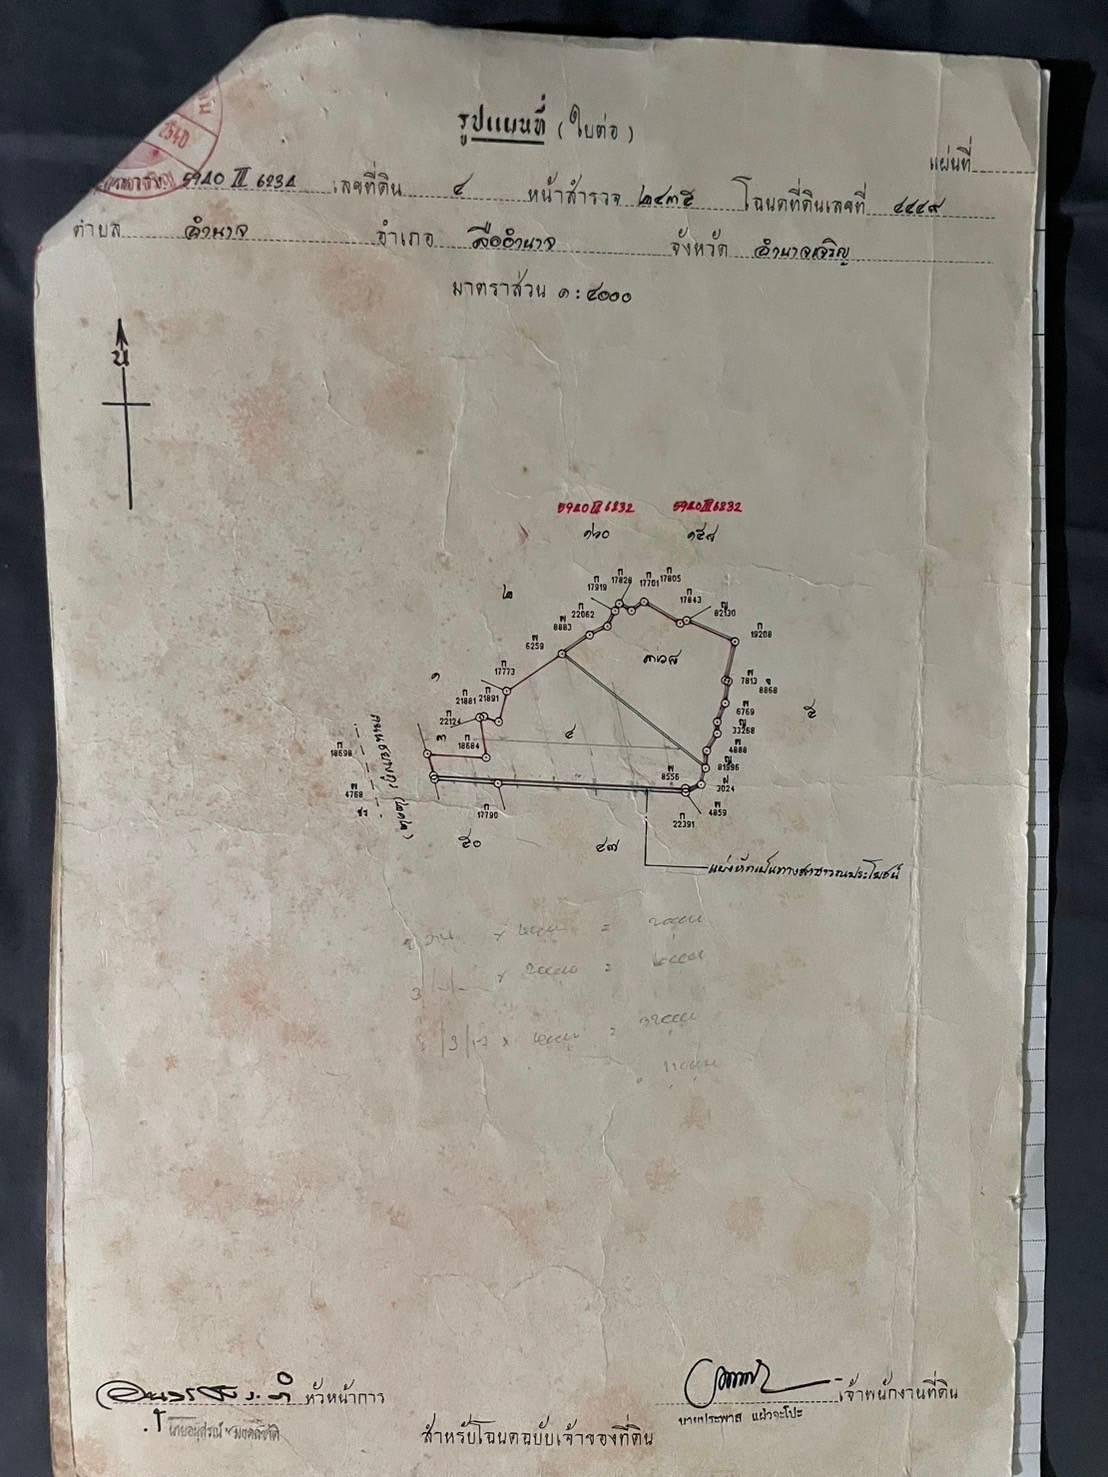 รูปแผนที่ (ใบต่อ)
แผ่นที่
2540
5940 III 6234 เลขที่ดิน ๔ หน้าสำรวจ ๒๔๓๕ โฉนดที่ดินเลขที่ ๔๔๔๙
ตำบล อำนาจ อำเภอ ลืออำนาจ จังหวัด อำนาจเจริญ
มาตราส่วน ๑ : ๔๐๐๐
น
5940 III 6232 5940 III 6232
๑๖๐ ๑๕๗
๒
ก 17919
ก 17828
ก 17701
ก 17805
ก 22062
ก 17843
ญ 82130
พ 8883
พ 6259
ก 19208
๓๖๘
ก 17773
๑
พ 7813
จ 8868
ก 21881
ก 21891
ก 22124
พ 6769
๕
ญ 33268
๓
ก 18684
๔
พ 4888
ก 18698
ญ 81996
พ 8556
ฝ 3024
พ 4768
ก 17790
พ 4859
ก 22391
๕๐ ๔๗
แบ่งหักเป็นทางสาธารณประโยชน์
หัวหน้าการ
เจ้าพนักงานที่ดิน
นายประพาส แผ้วจะโปะ
สำหรับโฉนดฉบับเจ้าของที่ดิน